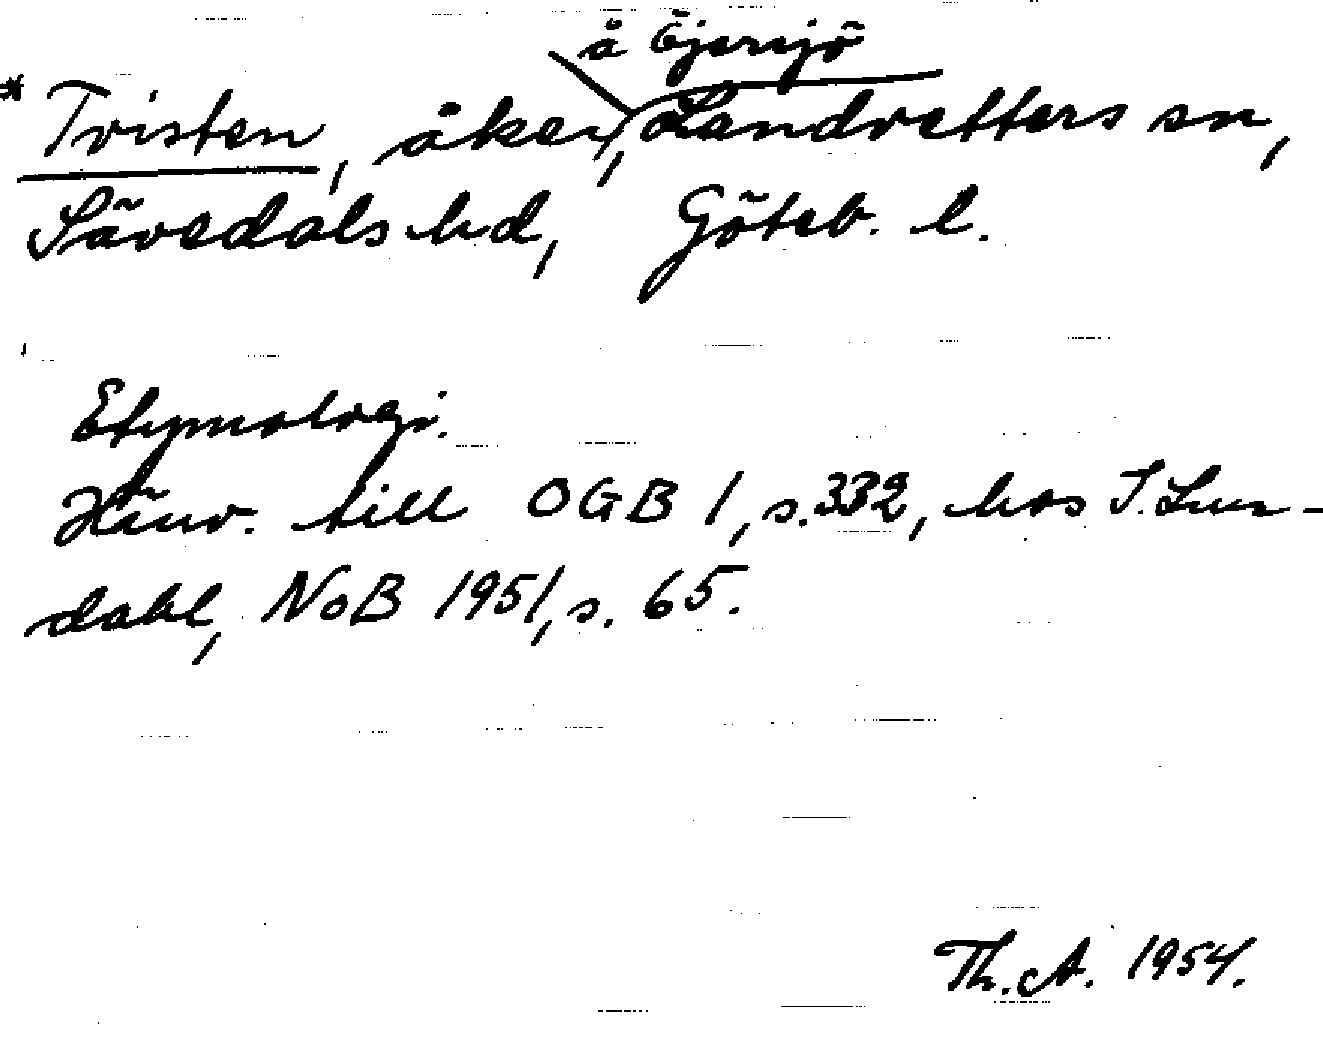 å Öjersjö
* Tvisten, åker, Landvetters sn,
Sävedals hd, Göteb. l.
Etymologi.
Hänv. till OGB 1, s. 332, hos I. Lun-
dahl, NoB 1951, s. 65.
Th. A. 1954.